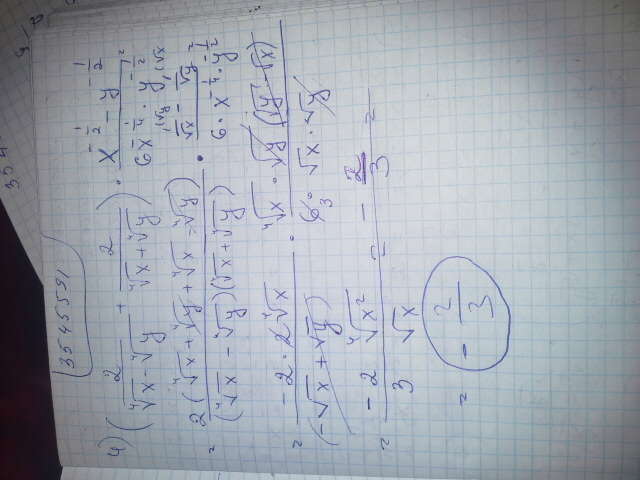 3545591
4) (2/(⁴√x - ⁴√y) + 2/(⁴√x + ⁴√y)) · (x^(-1/2) - y^(-1/2))/(6x^(-1/4) · y^(-1/2)) =
= 2(⁴√x + ⁴√y + ⁴√x - ⁴√y)/((⁴√x - ⁴√y)(⁴√x + ⁴√y)) · (1/√x - 1/√y)/(6 · x^(-1/4) · y^(-1/2)) =
= (-2 · 2⁴√x)/(-√x + √y) · (⁴√x · √y (√y - √x))/(6 · √x · √y)
= (-2 ⁴√x²)/(3 √x) = -2/3 =
= -2/3